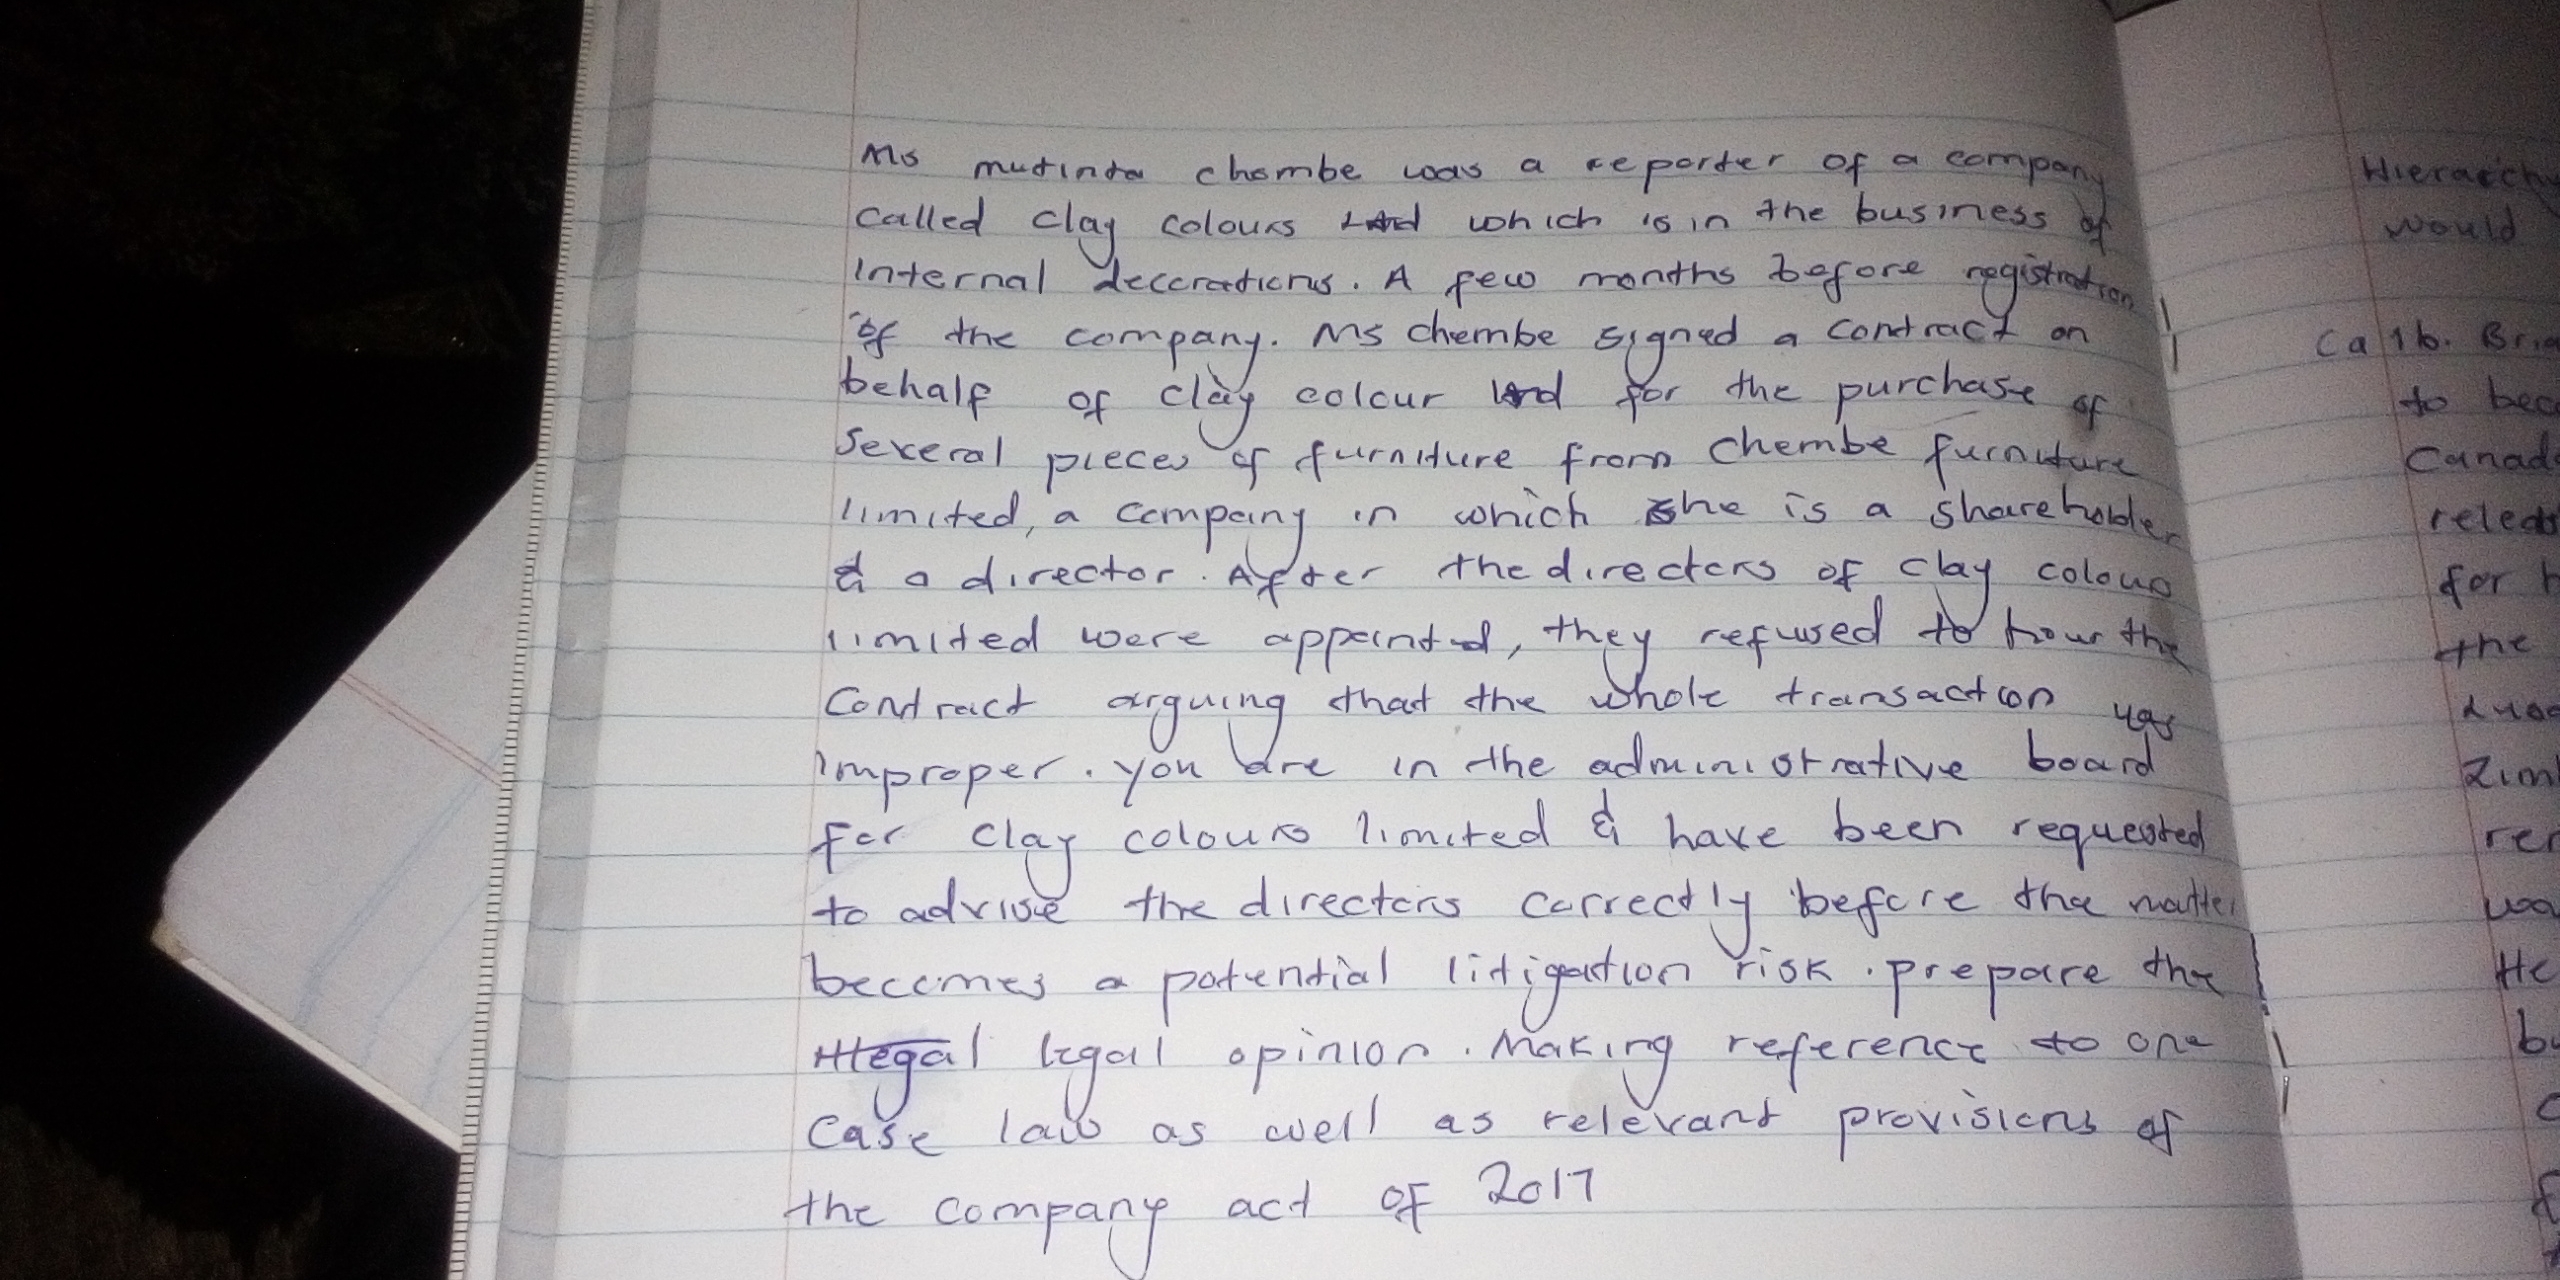 Ms mutinta chembe was a reporter of a company
called clay colours Ltd which is in the business of
internal decorations. A few months before registration
of the company. Ms chembe signed a contract on
behalf of clay colour Ltd for the purchase of
several pieces of furniture from chembe furniture
limited, a company in which she is a shareholder
& a director. After the directors of clay colours
limited were appointed, they refused to hour the
contract arguing that the whole transaction was
improper. you are in the administrative board
for clay colours limited & have been requested
to advise the directors correctly before the matter
becomes a potential litigation risk. prepare the
legal opinion. Making reference to one
case law as well as relevant provisions of
the company act of 2017
Hierarchy
would
Ca 1b.
to
for
the